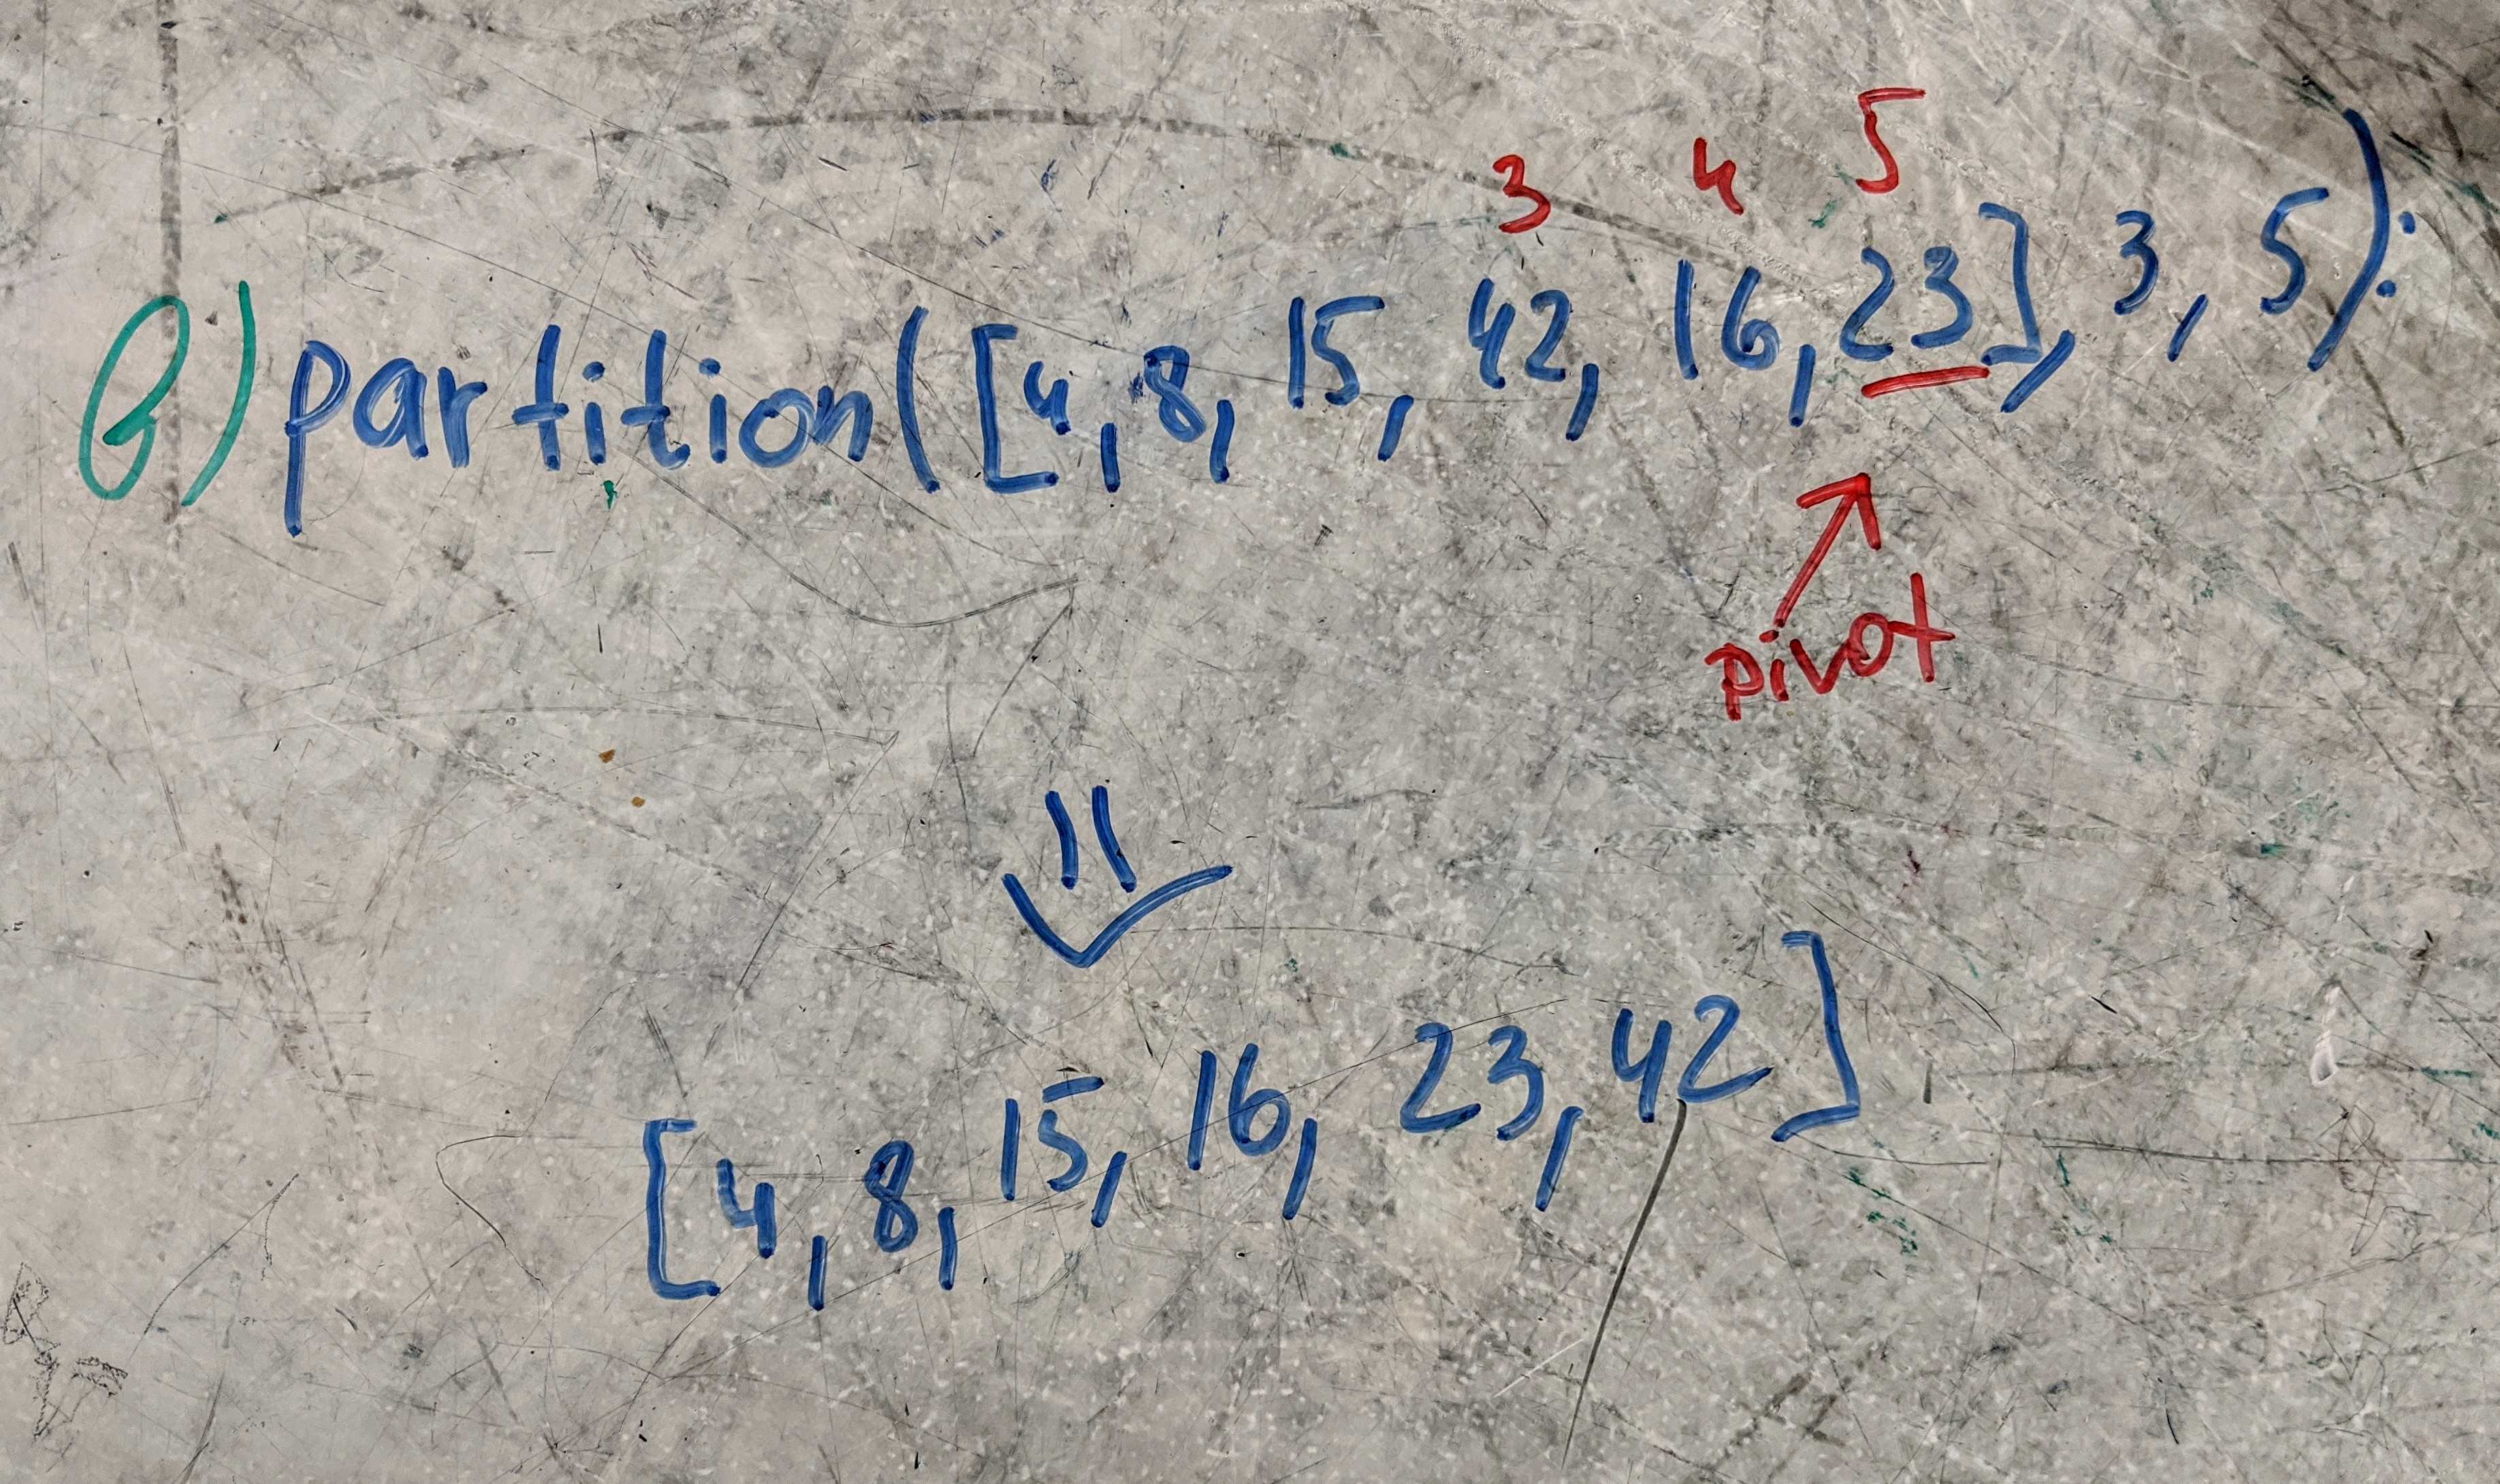 3 4 5
6) partition([4, 8, 15, 42, 16, 23], 3, 5):
pivot
[4, 8, 15, 16, 23, 42]